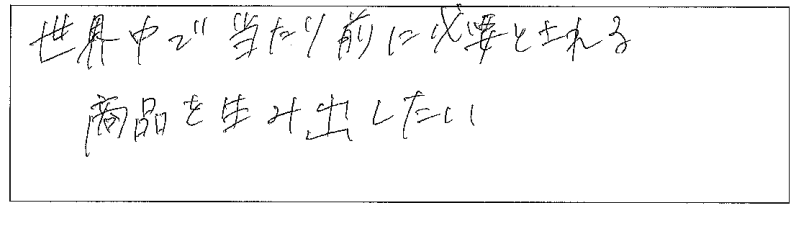 世界中で当たり前に必要とされる
商品を生み出したい